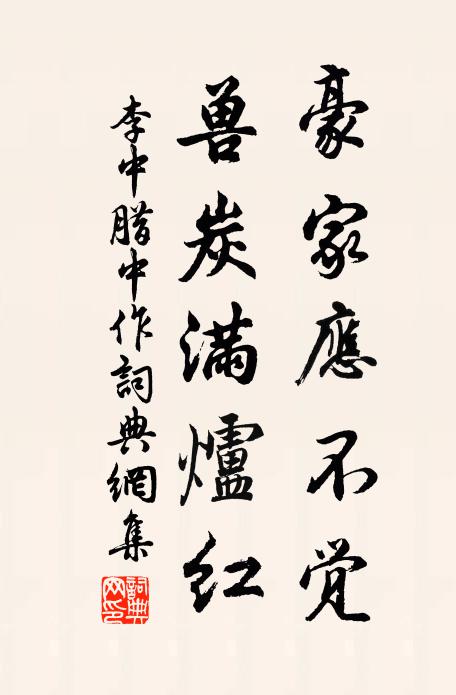 豪家應不觉
兽炭满爐红
李中腊中作詞典網集
詞典网印